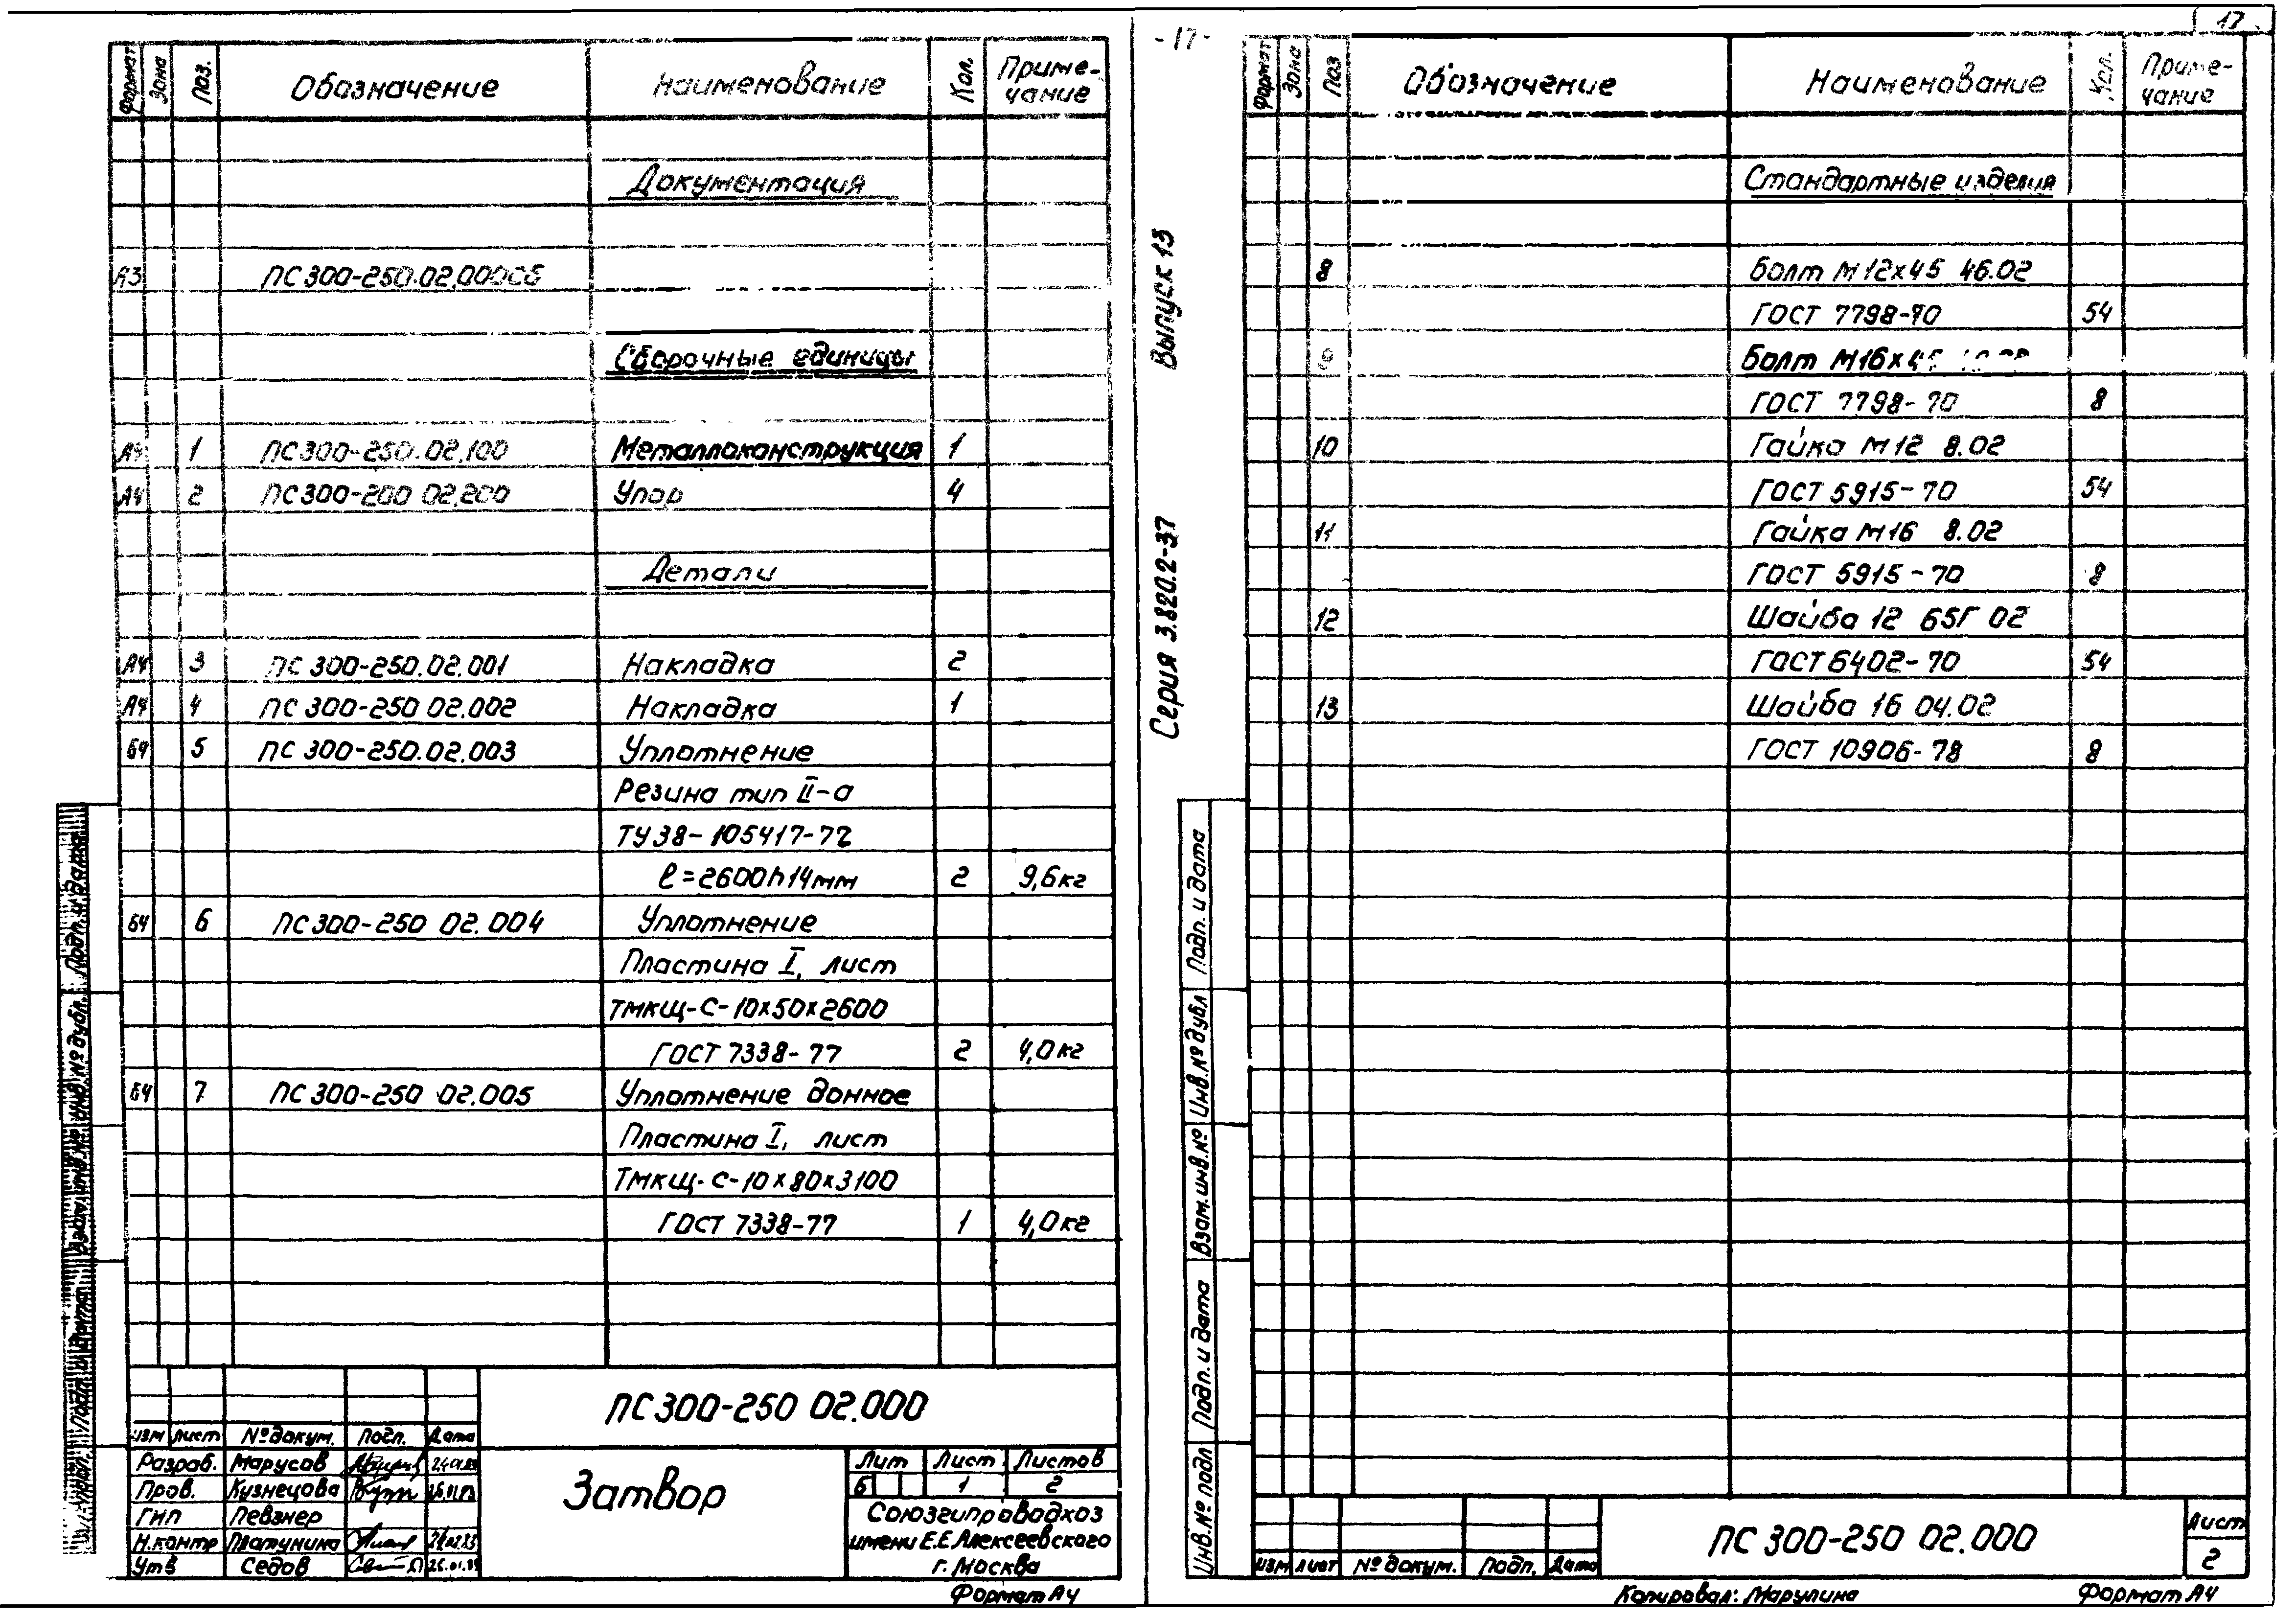 17
-17-
Формат Зона Поз. Обозначение Наименование Кол. Приме-
чание
Документация
А3 ПС300-250.02.000СБ
Сборочные единицы
1 ПС300-250.02.100 Металлоконструкция 1
А4 2 ПС300-200 02.200 Упор 4
Детали
А4 3 ПС 300-250.02.001 Накладка 2
А4 4 ПС 300-250 02.002 Накладка 1
Б4 5 ПС 300-250.02.003 Уплотнение
Резина тип II-а
ТУ38-105417-72
ℓ=2600h14мм 2 9,6кг
Б4 6 ПС300-250 02.004 Уплотнение
Пластина I, лист
ТМКЩ-С-10х50х2600
ГОСТ 7338-77 2 4,0кг
Б4 7 ПС300-250 02.005 Уплотнение донное
Пластина I, лист
ТМКЩ-С-10х80х3100
ГОСТ 7338-77 1 4,0кг
Подп. и дата
Инв.№ дубл.
Взам.инв.№
Подп. и дата
Инв.№ подл.
ПС300-250 02.000
Изм Лист №докум. Подп. Дата
Разраб. Марусов 24.01.83
Пров. Кузнецова
ГИП Певзнер
Н.контр Платунина
Утв Седов
Затвор
Лит Лист Листов
Б 1 2
Союзгипроводхоз
имени Е.Е.Алексеевского
г. Москва
Формат А4
Серия 3.820.2-37 Выпуск 13
Формат Зона Поз Обозначение Наименование Кол. Приме-
чание
Стандартные изделия
8 Болт М12х45 46.02
ГОСТ 7798-70 54
9 Болт М16х45
ГОСТ 7798-70 8
10 Гайка М12 8.02
ГОСТ 5915-70 54
11 Гайка М16 8.02
ГОСТ 5915-70 8
12 Шайба 12 65Г 02
ГОСТ 6402-70 54
13 Шайба 16 04.02
ГОСТ 10906-78 8
Подп. и дата
Инв.№ дубл
Взам.инв.№
Подп. и дата
Инв.№ подл
Изм Лист №докум. Подп. Дата
ПС 300-250 02.000
Лист
2
Копировал: Марулина Формат А4